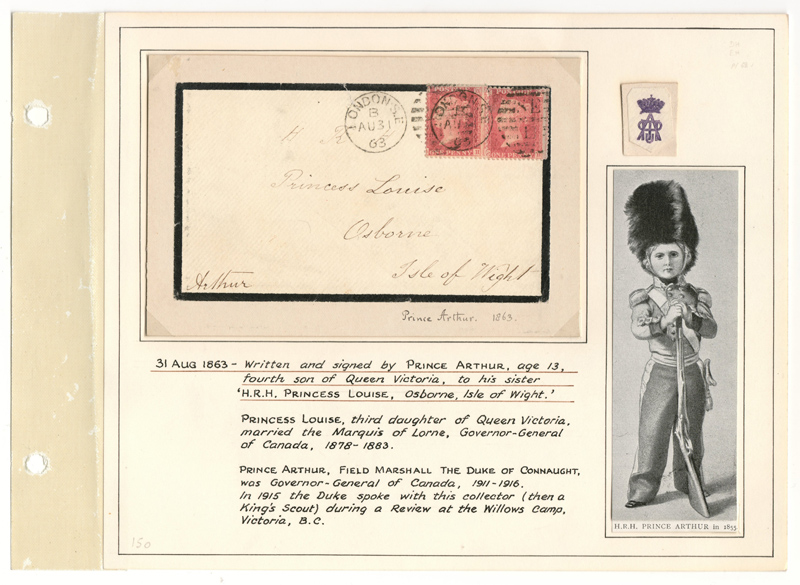 LONDON.S.E
B
AU31
63
POST
PO
LONDON.S.E
AU
63
S.E
1
H R
Princess Louise
Osborne
Isle of Wight
Arthur
Prince Arthur. 1863.
31 AUG 1863 - Written and signed by PRINCE ARTHUR, age 13,
fourth son of Queen Victoria, to his sister
'H.R.H. PRINCESS LOUISE, OSBORNE, ISLE OF WIGHT.'
PRINCESS LOUISE, third daughter of Queen Victoria,
married the Marquis of Lorne, Governor-General
of Canada, 1878-1883.
PRINCE ARTHUR, FIELD MARSHALL THE DUKE OF CONNAUGHT,
was Governor-General of Canada, 1911-1916.
In 1915 the Duke spoke with this collector (then a
King's Scout) during a Review at the Willows Camp,
Victoria, B.C.
H.R.H. PRINCE ARTHUR in 1855
150